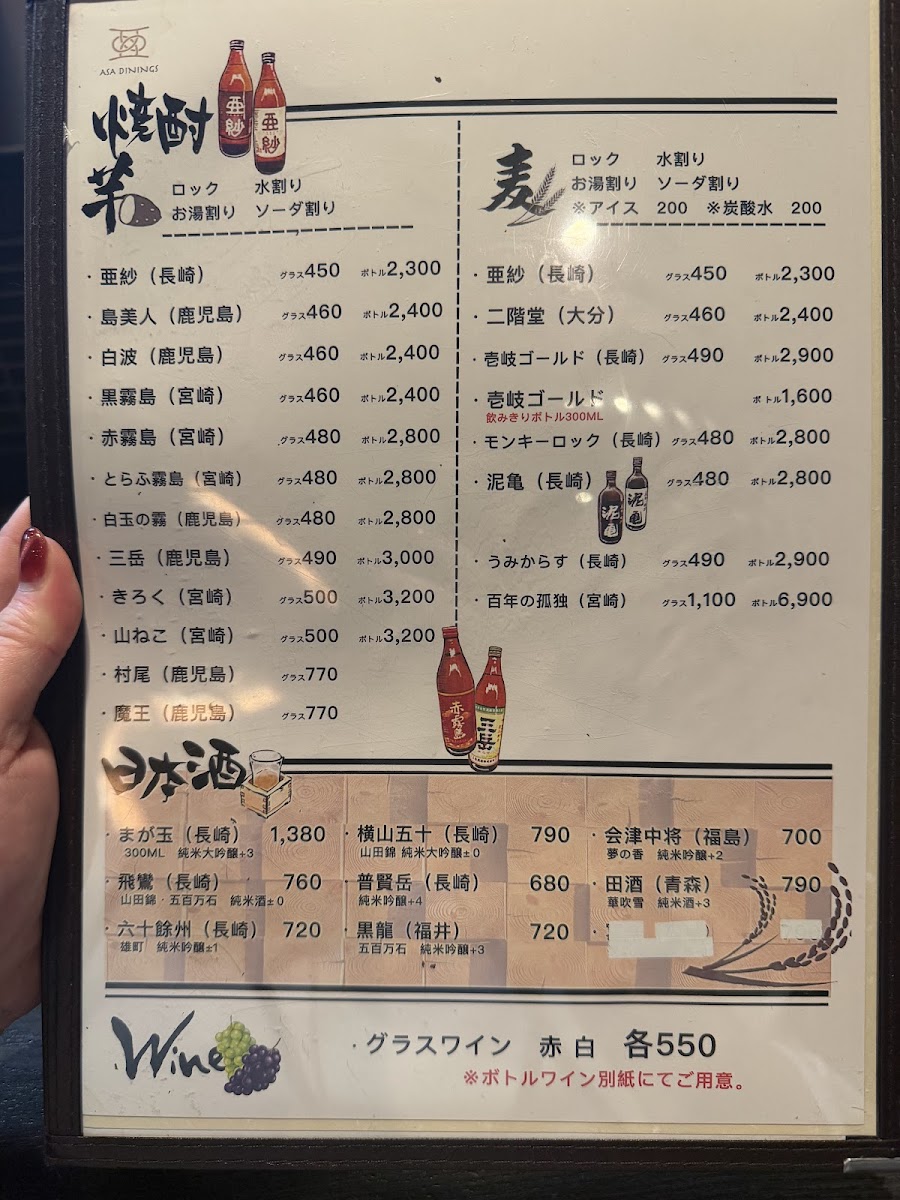 ASA DININGS
焼酎
亜紗
亜紗
芋
ロック 水割り
お湯割り ソーダ割り
・亜紗（長崎） グラス450 ボトル2,300
・島美人（鹿児島） グラス460 ボトル2,400
・白波（鹿児島） グラス460 ボトル2,400
・黒霧島（宮崎） グラス460 ボトル2,400
・赤霧島（宮崎） グラス480 ボトル2,800
・とらふ霧島（宮崎） グラス480 ボトル2,800
・白玉の霧（鹿児島） グラス480 ボトル2,800
・三岳（鹿児島） グラス490 ボトル3,000
・きろく（宮崎） グラス500 ボトル3,200
・山ねこ（宮崎） グラス500 ボトル3,200
・村尾（鹿児島） グラス770
・魔王（鹿児島） グラス770
麦
ロック 水割り
お湯割り ソーダ割り
※アイス 200 ※炭酸水 200
・亜紗（長崎） グラス450 ボトル2,300
・二階堂（大分） グラス460 ボトル2,400
・壱岐ゴールド（長崎） グラス490 ボトル2,900
・壱岐ゴールド ボトル1,600
飲みきりボトル300ML
・モンキーロック（長崎） グラス480 ボトル2,800
・泥亀（長崎） グラス480 ボトル2,800
泥亀
泥亀
・うみからす（長崎） グラス490 ボトル2,900
・百年の孤独（宮崎） グラス1,100 ボトル6,900
赤霧島
三岳
日本酒
・まが玉（長崎） 1,380
300ML 純米大吟醸+3
・飛鸞（長崎） 760
山田錦・五百万石 純米酒±0
・六十餘州（長崎） 720
雄町 純米吟醸±1
・横山五十（長崎） 790
山田錦 純米大吟醸±0
・普賢岳（長崎） 680
純米吟醸+4
・黒龍（福井） 720
五百万石 純米吟醸+3
・会津中将（福島） 700
夢の香 純米吟醸+2
・田酒（青森） 790
華吹雪 純米酒+3
Wine
・グラスワイン 赤 白 各550
※ボトルワイン別紙にてご用意。